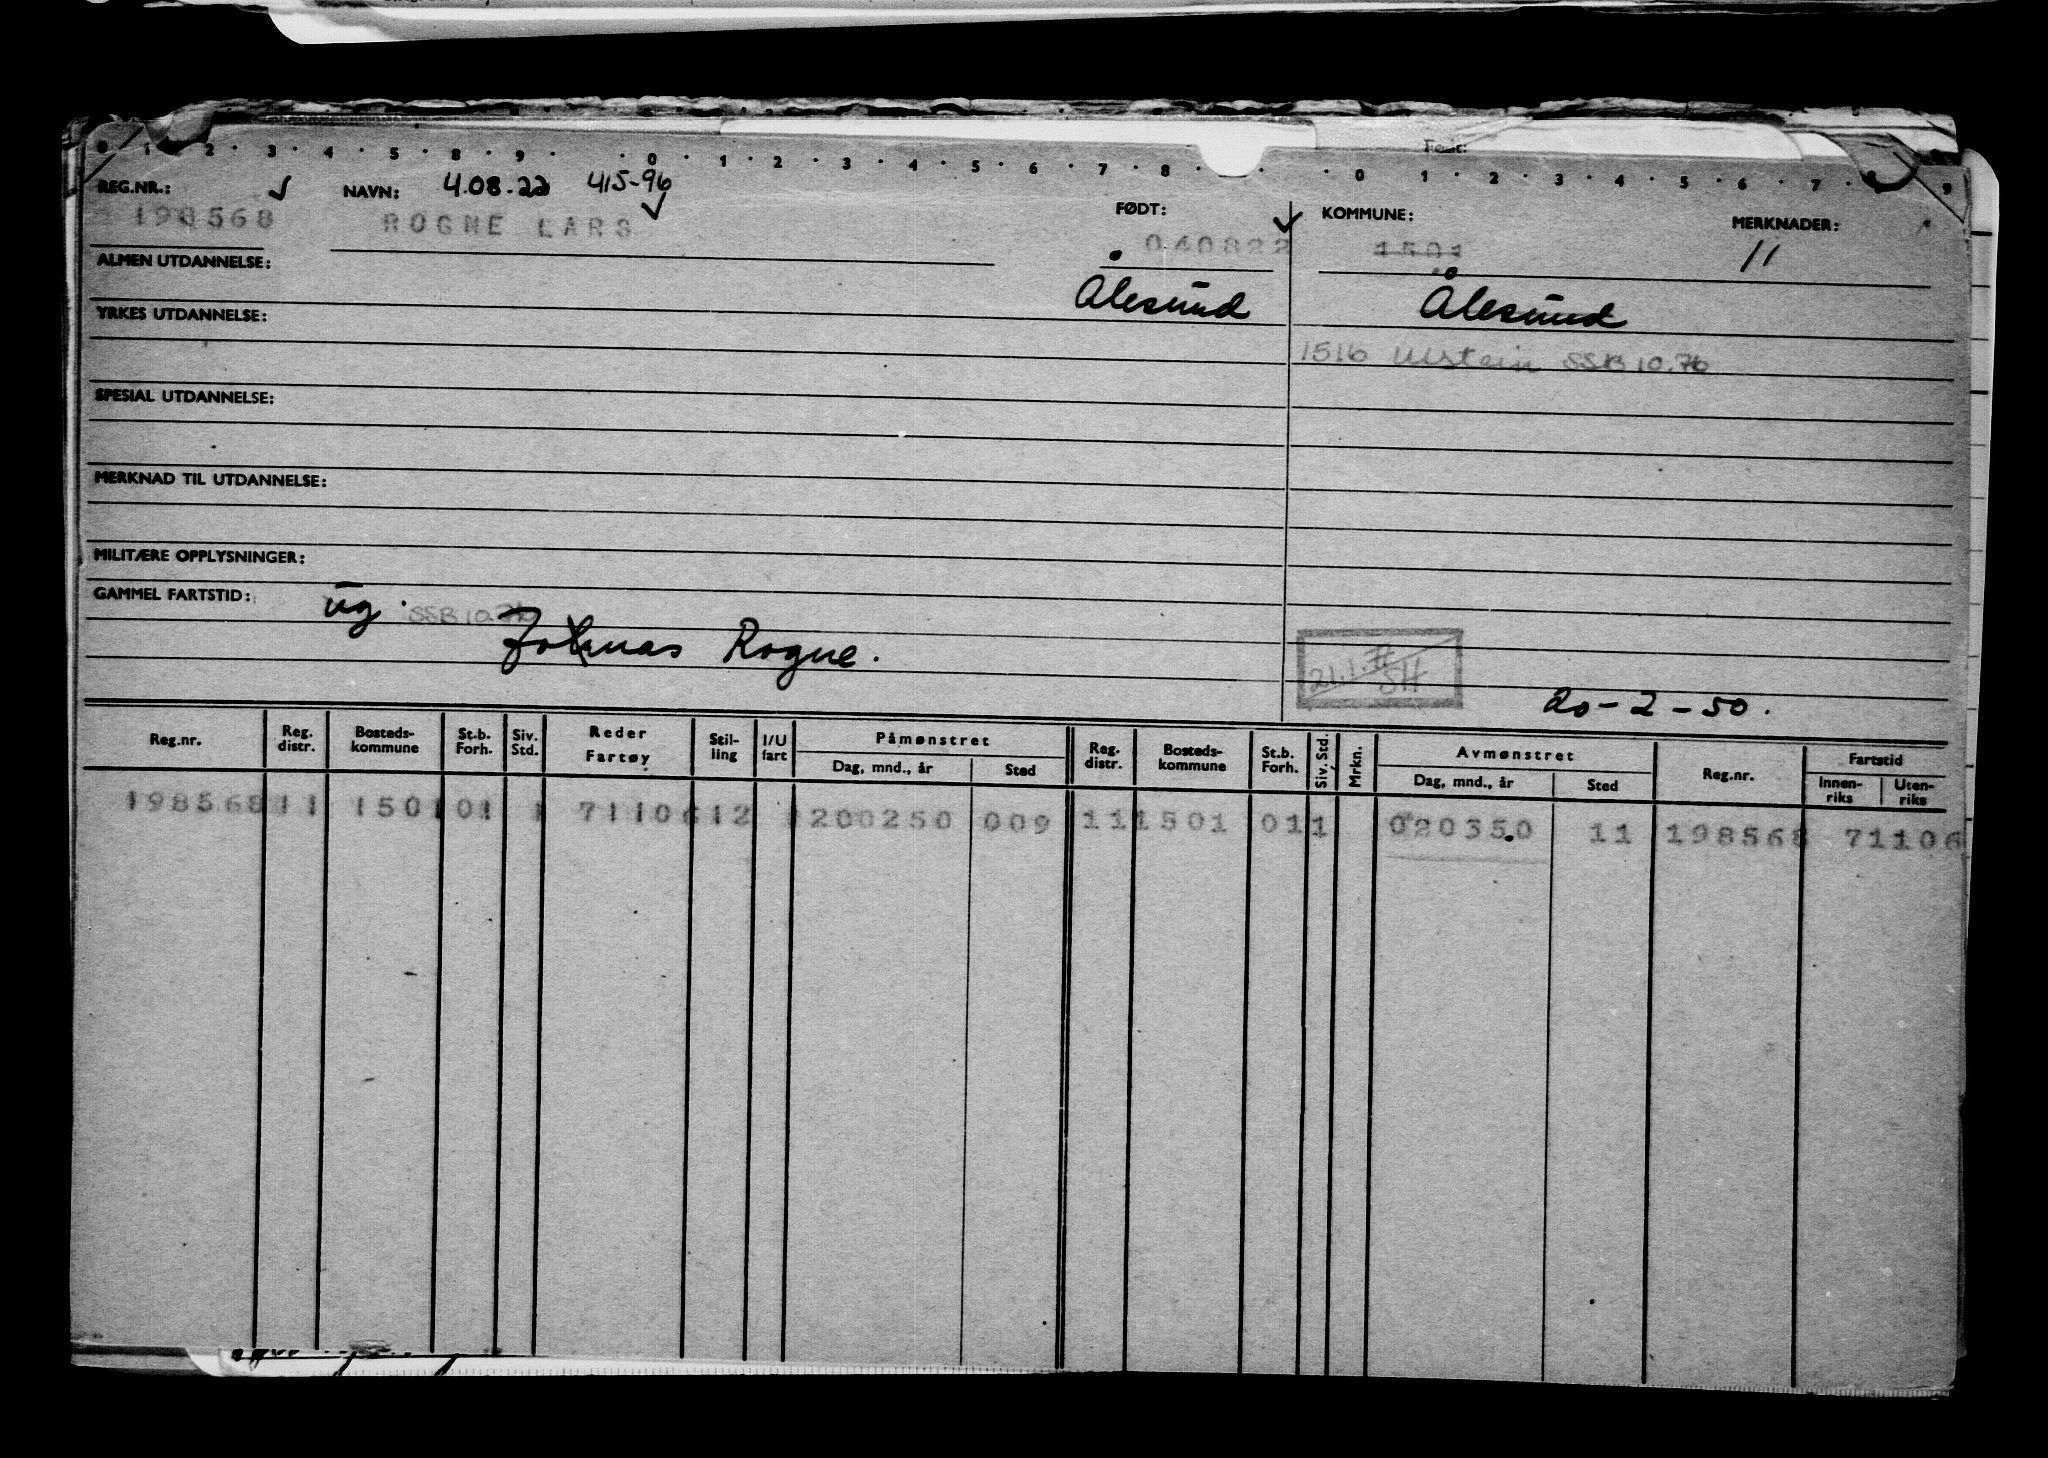 Født:
0 1 2 3 4 5 8 9 0 1 2 3 4 5 6 7 8 0 1 2 3 4 5 6 7 8 9
REG.NR.: NAVN: 4.08.22 415-96
198568 ROGNE LARS
FØDT: KOMMUNE: MERKNADER:
040822 1501 11
ALMEN UTDANNELSE:
Ålesund Ålesund
YRKES UTDANNELSE:
1516 Ulstein SSB 10.76
SPESIAL UTDANNELSE:
MERKNAD TIL UTDANNELSE:
MILITÆRE OPPLYSNINGER:
GAMMEL FARTSTID: ug. SSB 10.76
Rogne.
21.1. SH
20-2-50.
Reg.nr. Reg. distr. Bosteds- kommune St.b. Forh. Siv. Std. Reder Fartøy Stil- ling I/U fart Påmønstret Dag, mnd., år Sted Reg. distr. Bosteds- kommune St.b. Forh. Siv. Std. Mrkn. Avmønstret Dag, mnd., år Sted Reg.nr. Fartstid Innen- riks Uten- riks
198568 11 1501 01 1 71106 12 1 200250 009 11 1501 01 1 020350 11 198568 71106